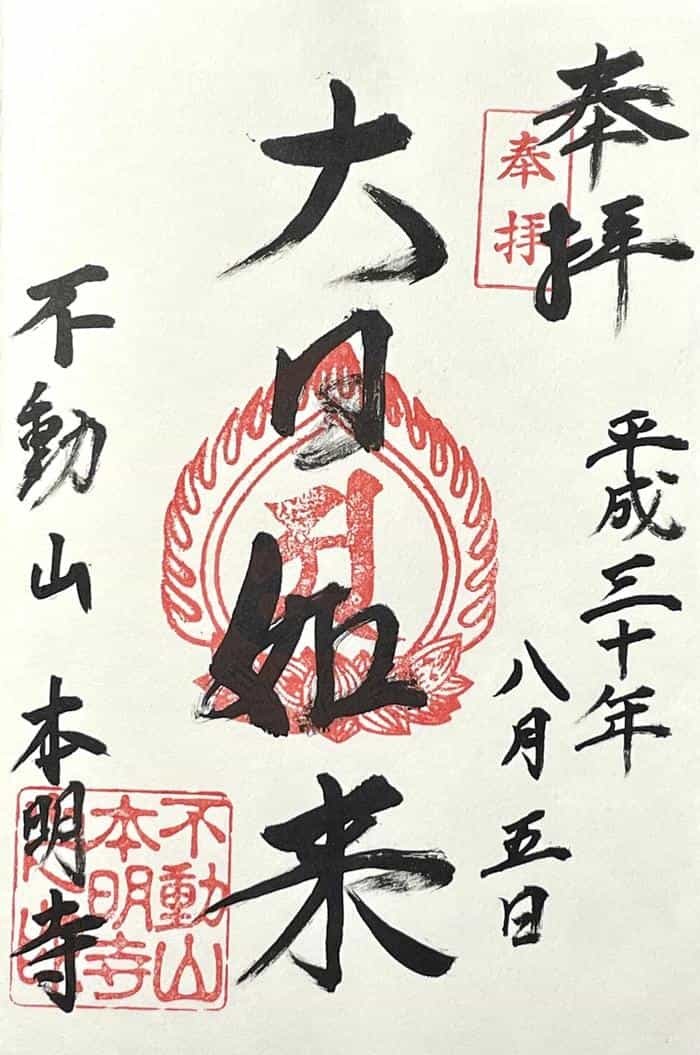 奉拝
奉拝
平成三十年
八月五日
大日如来
不動山 本明寺
不動山
本明寺